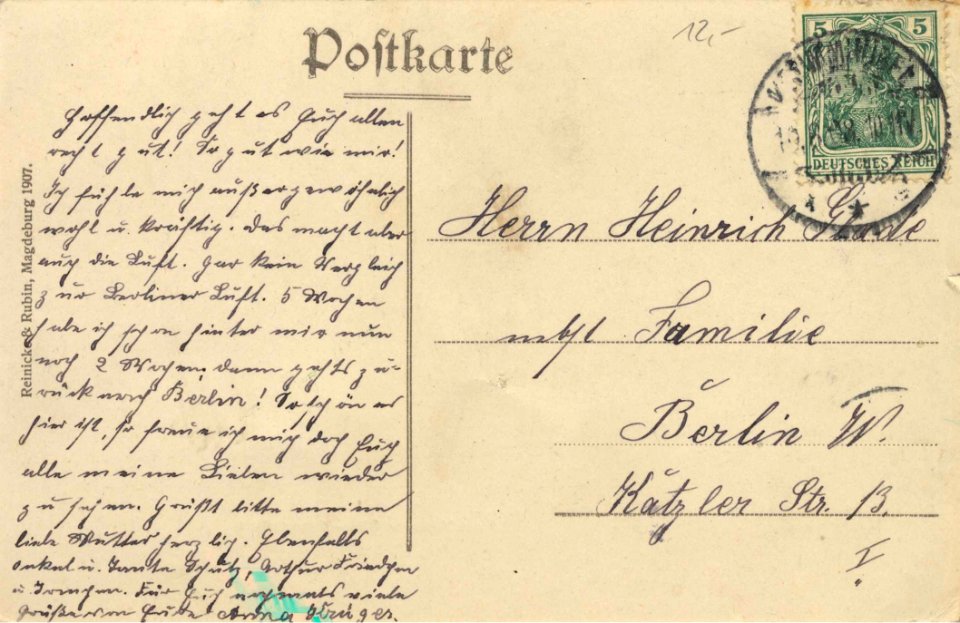 Postkarte
12,-
5 5
DEUTSCHES REICH
Reinicke & Rubin, Magdeburg 1907.
Hoffendlich geht es Euch allen
recht gut! So gut wie mir!
Ich fühle mich außergewöhnlich
wohl u. kräftig. Das macht aber
auch die Luft. Gar kein Vergleich
zur Berliner Luft. 5 Wochen
habe ich schon hinter mir nun
noch 2 Wochen, dann gehts zu-
rück nach Berlin! So schön es
hier ist, so freue ich mich doch Euch
alle meine Lieben wieder
zu sehen. Grüßt bitte meine
liebe Mutter herzlich. Ebenfalls
Onkel u. Tante Schulz, Arthur
u. Für Euch nochmals viele
Grüße Anna Krüger.
Herrn Heinrich
nebst Familie
Berlin W.
Katzler Str. 13.
I